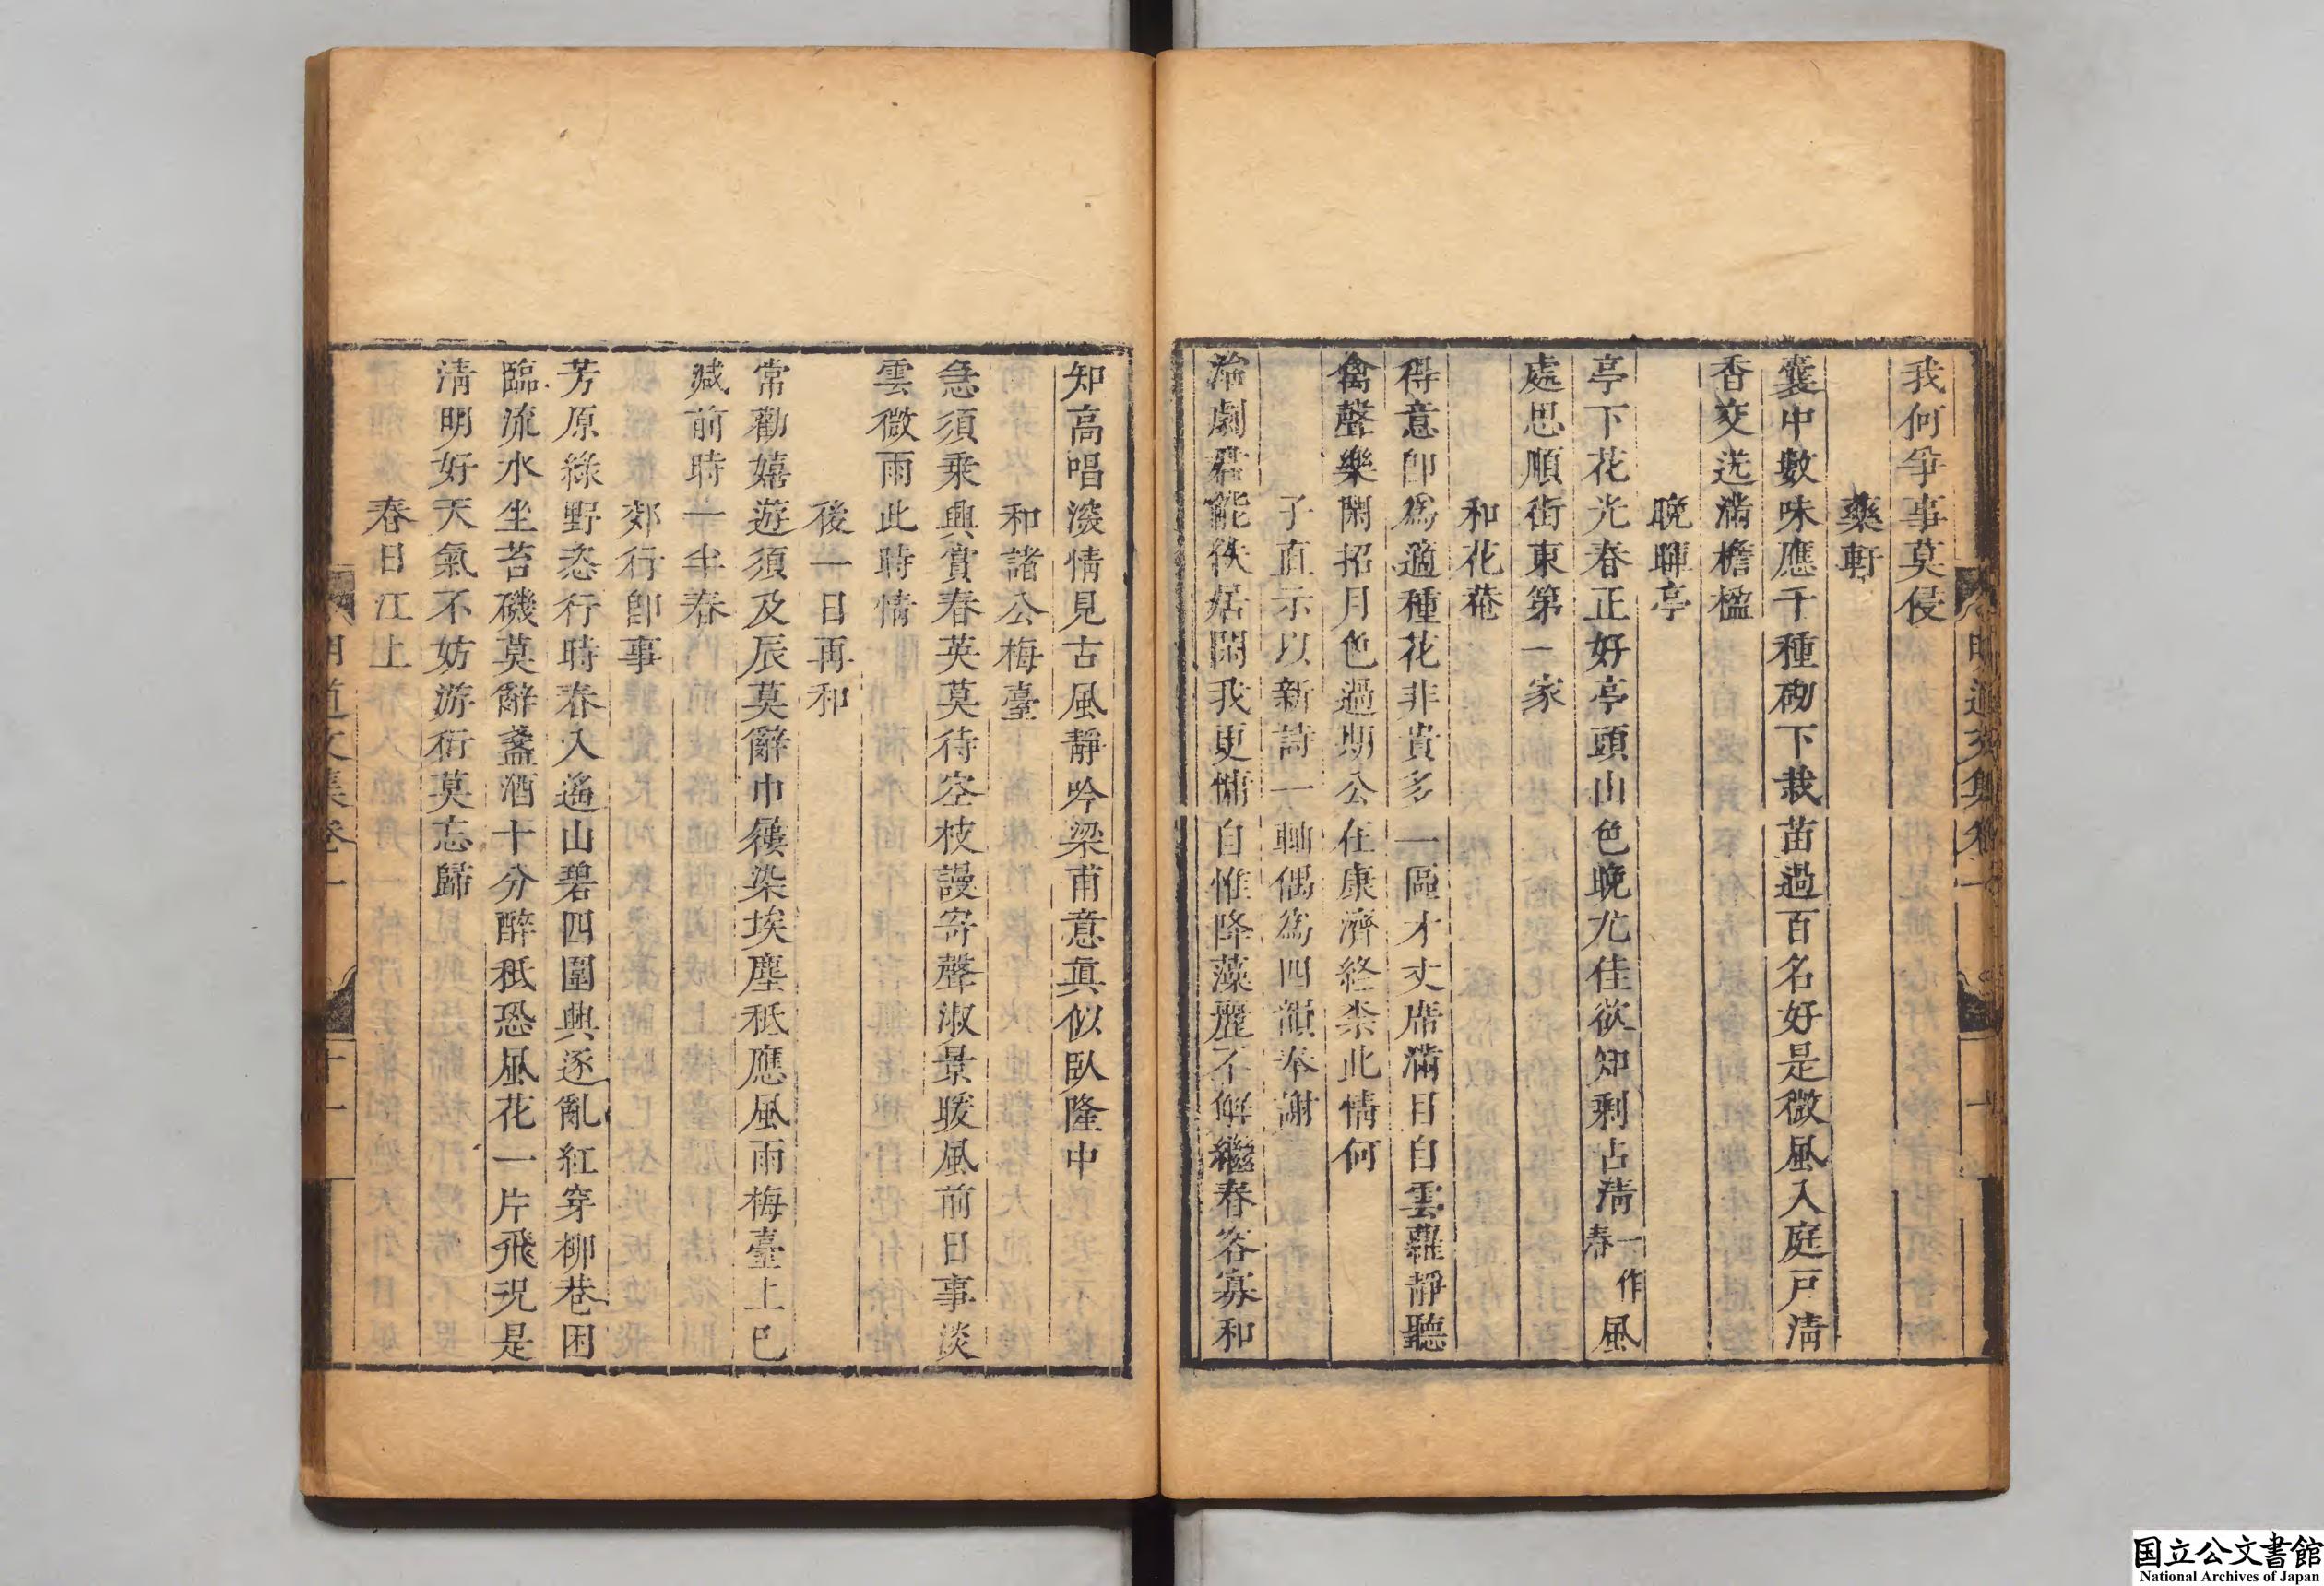 我何爭事莫侵
藥軒
囊中數味應千種砌下栽苗過百名好是微風入庭戸清
香交送滿檐楹
晚暉亭
亭下花光春正好亭頭山色晚尤佳欲知剩占清一作風春
處思順街東第一家
和花菴
得意即爲適種花非貴多一區才丈席滿目自雲蘿靜聽
禽聲樂閑招月色過期公在康濟終柰此情何
子直示以新詩一軸偶爲四韻奉謝
治劇君能佚居閑我更慵自惟降藻麗不解繼春容寡和
知高唱深情見古風靜吟梁甫意眞似臥隆中
和諸公梅臺
急須乗興賞春英莫待空枝謾寄聲淑景暖風前日事淡
雲微雨此時情
後一日再和
常勸嬉遊須及辰莫辭巾屨染埃塵秪應風雨梅臺上已
减前時一半春
郊行即事
芳原綠野恣行時春入遙山碧四圍興逐亂紅穿柳巷困
臨流水坐苔磯莫辭盞酒十分醉秪恐風花一片飛况是
清明好天氣不妨游衍莫忘歸
春日江上
明道文集卷一
十一
国立公文書館
National Archives of Japan